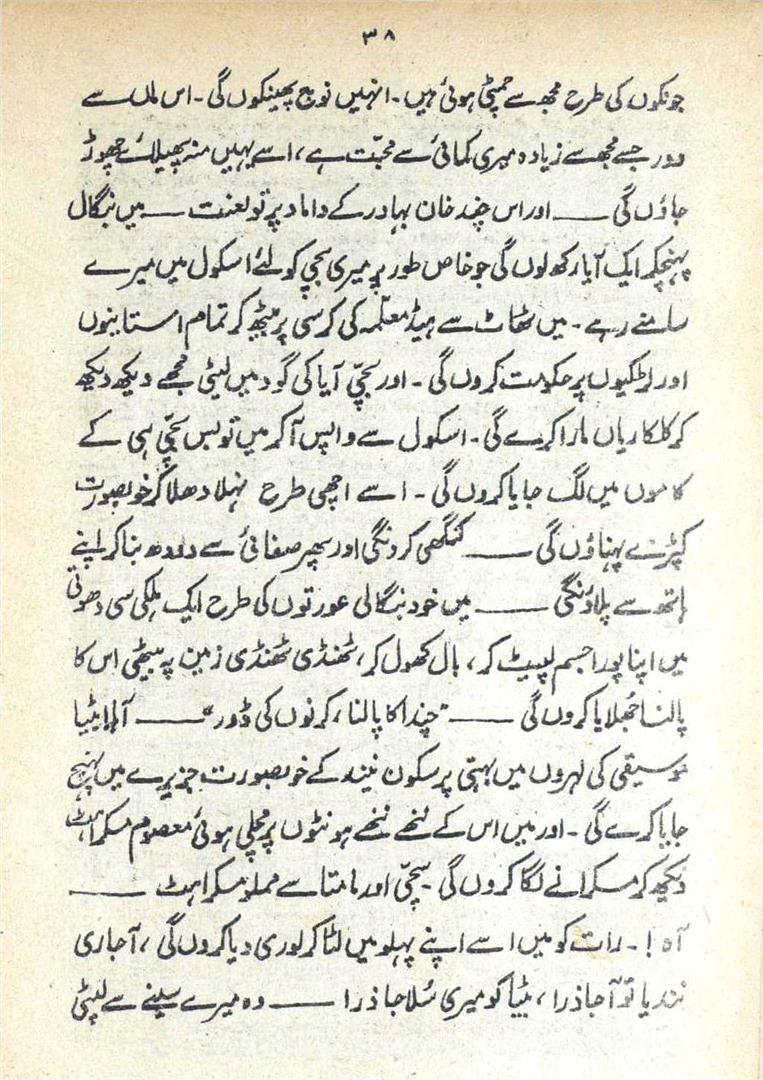 ۳۸
جونکوں کی طرح مجھ سے چمٹی ہوئی ہیں ۔ انہیں نوچ پھینکوں گی ۔ اس ماں سے
دور جسے مجھ سے زیادہ میری کمائی سے محبّت ہے ، اسے یہیں منہ پھیلائے چھوڑ
جاؤں گی ــــ اور اس چند خان بہادر کے داماد پر تو لعنت ــــ میں بنگال
پہنچکر ایک آیا رکھ لوں گی جو خاص طور پر میری بچی کو لئے اسکول میں میرے
سامنے رہے ۔ میں ٹھاٹ سے ہیڈ معلّمہ کی کرسی پر بیٹھ کر تمام استانیوں
اور لڑکیوں پر حکومت کروں گی ۔ اور بچّی آیا کی گود میں لیٹی مجھے دیکھ دیکھ
کر کلکاریاں مارا کرے گی ۔ اسکول سے واپس آکر میں تو بس بچّی ہی کے
کاموں میں لگ جایا کروں گی ۔ اسے اچھی طرح نہلا دھلا کر خوبصورت
کپڑے پہناؤں گی ــــ کنگھی کر دنگی اور پھر صفائی سے دودھ بنا کر اپنے
ہاتھ سے پلاؤنگی ــــ میں خود بنگالی عورتوں کی طرح ایک ہلکی سی دھوتی
میں اپنا پورا جسم لپیٹ کر ، بال کھول کر، ٹھنڈی ٹھنڈی زمین پہ بیٹھی اس کا
پالنا جُھلایا کروں گی ــــ "چندا کا پالنا ، کرنوں کی ڈور" ــــ آہا! بٹیا
موسیقی کی لہروں میں بہتی پرسکون نیند کے خوبصورت جزیرے میں پہنچ
جایا کرے گی ۔ اور میں اس کے ننھے ننھے ہونٹوں پر مچلی ہوئی معصوم مسکراہٹ
دیکھ کر مسکرانے لگا کروں گی ۔ سچّی اور مامتا سے مملو مسکراہٹ ــــ
آہ ! ۔ رات کو میں اسے اپنے پہلو میں لٹا کر لوری دیا کروں گی ، آجا ری
نندیا تو آجا ذرا ، بٹیا کو میری سُلا جا ذرا ــــ وہ میرے سینے سے لپٹی